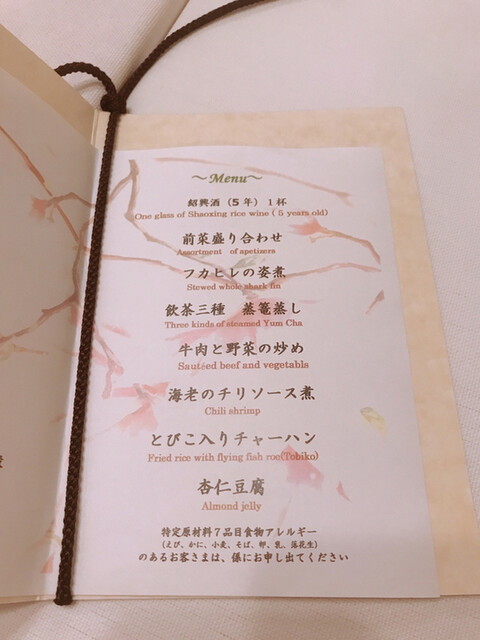 ～Menu～
紹興酒（5年）1杯
One glass of Shaoxing rice wine ( 5 years old)
前菜盛り合わせ
Assortment of apetizers
フカヒレの姿煮
Stewed whole shark fin
飲茶三種　蒸篭蒸し
Three kinds of steamed Yum Cha
牛肉と野菜の炒め
Sautéed beef and vegetabls
海老のチリソース煮
Chili shrimp
とびこ入りチャーハン
Fried rice with flying fish roe(Tobiko)
杏仁豆腐
Almond jelly
特定原材料７品目食物アレルギー
（えび、かに、小麦、そば、卵、乳、落花生）
のあるお客さまは、係にお申し出てください